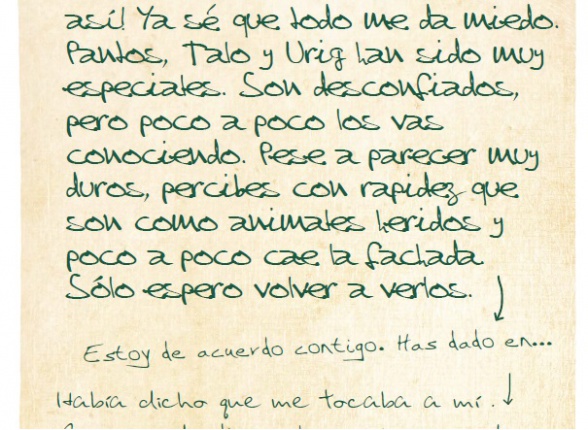 así! Ya sé que todo me da miedo.
Pantos, Talo y Urig han sido muy
especiales. Son desconfiados,
pero poco a poco los vas
conociendo. Pese a parecer muy
duros, percibes con rapidez que
son como animales heridos y
poco a poco cae la fachada.
Sólo espero volver a verlos.
Estoy de acuerdo contigo. Has dado en...
Había dicho que me tocaba a mí.